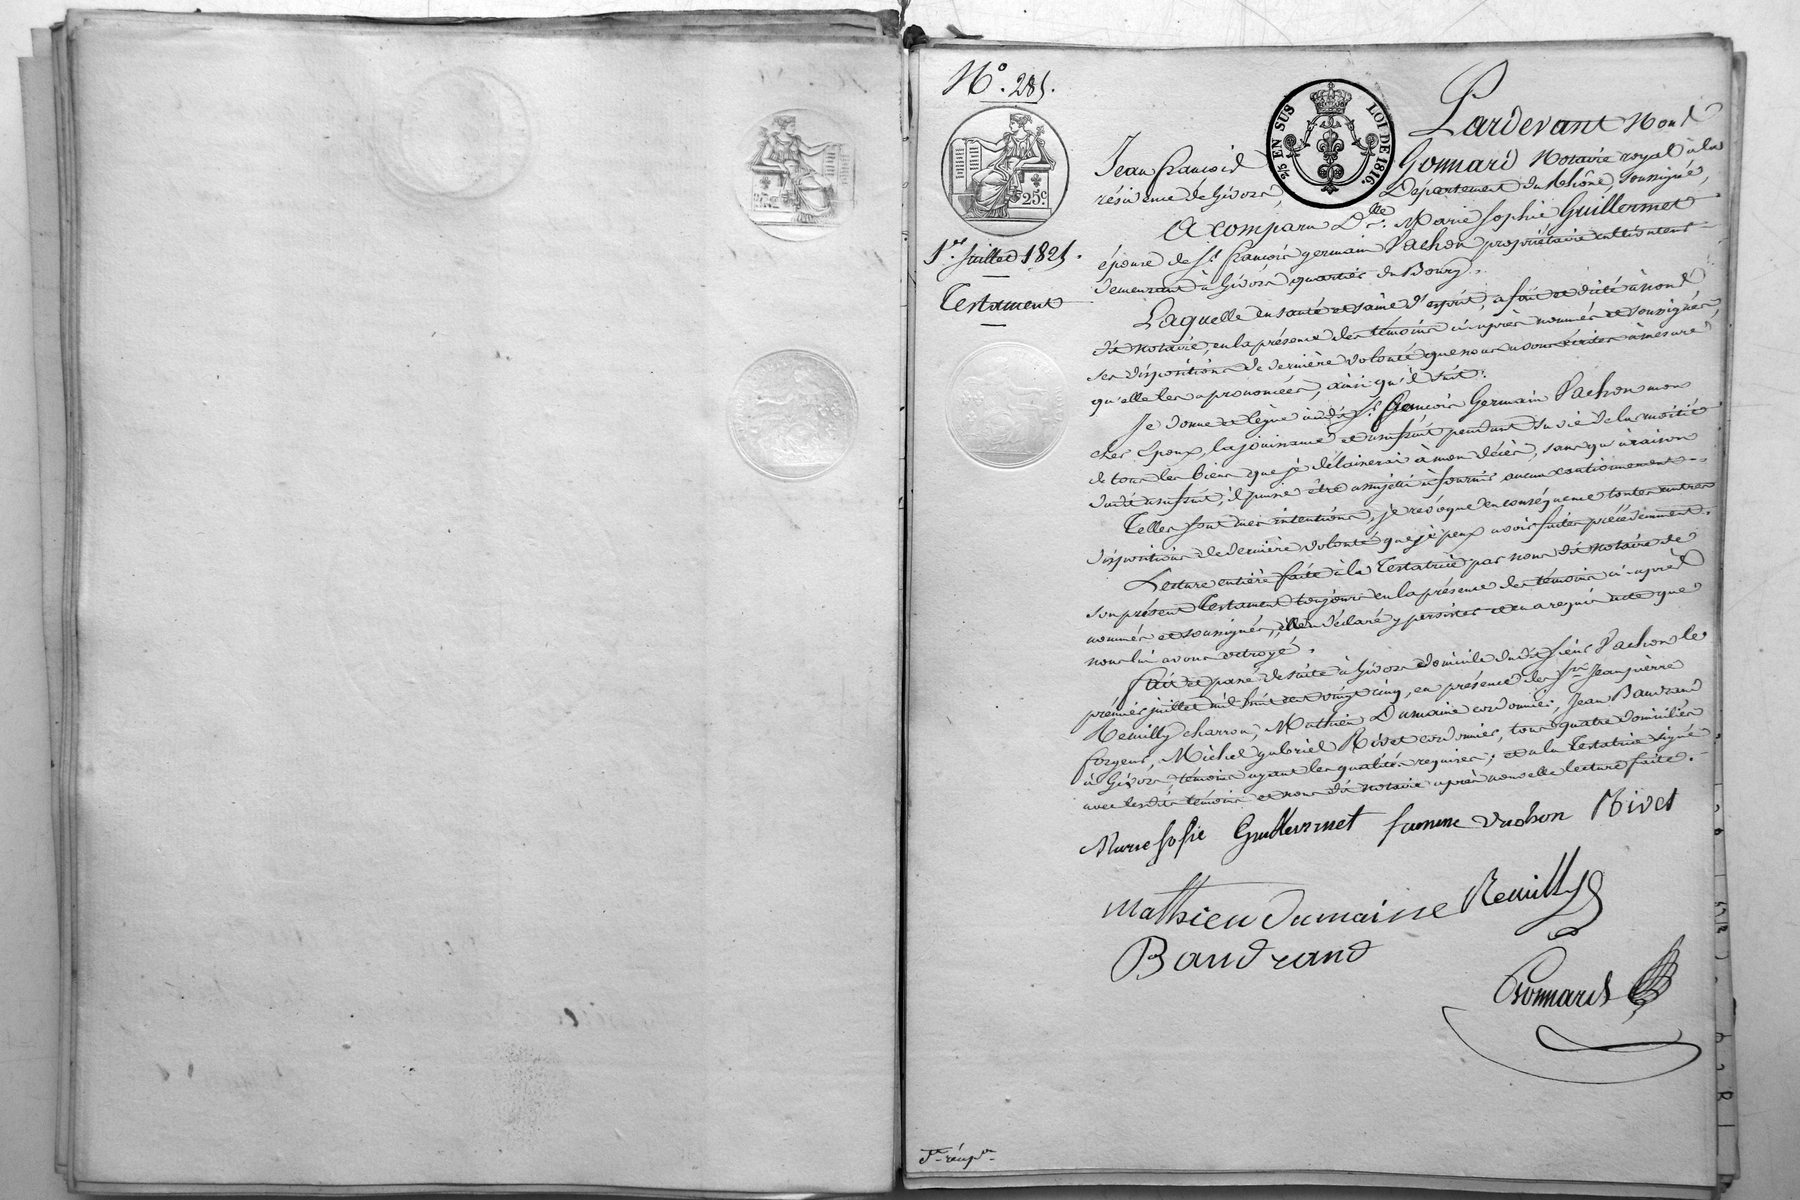 N.° 285.
25 c.
2/5 EN SUS LOI DE 1816.
1.er Juillet 1825.
Testament
Pardevant Nous
Jean françois Gonnard Notaire royal à la
résidence de Givors, Département du Rhône, soussigné,
A comparu D.lle Marie Sophie Guillermet
épouse de S.r françois germain Vachon propriétaire
demeurant à Givors quartier du Bourg.
Laquelle en santé et saine d'esprit, a fait et dicté à nous
dit notaire, en la présence des témoins ci-après nommés et soussignés,
ses dispositions de dernière volonté que nous avons écrites à mesure
qu'elle les a prononcées, ainsi qu'il suit:
Je donne et lègue audit S.r françois Germain Vachon mon
cher Epoux, la jouissance et usufruit pendant sa vie de la moitié
de tous les biens que je délaisserai à mon décès, sans qu'à raison
dudit usufruit, il puisse être assujetti à fournir aucun cautionnement.
Telles sont mes intentions, je révoque en conséquence toutes autres
dispositions de dernière volonté que je peux avoir faites précédemment.
Lecture entière faite à la Testatrice par nous dit notaire de
son présent Testament toujours en la présence des témoins ci-après
nommés et soussignés, elle a déclaré y persister et en a requis acte que
nous lui avons octroyé.
fait et passé de suite à Givors domicile dudit sieur Vachon le
premier juillet mil huit cent vingt cinq, en présence des S.rs Jean pierre
Remilly charron, Mathieu Dumaine cordonnier, Jean Baudrand
forgeur, Michel gabriel Rivet cordonnier, tous quatre domiciliés
à Givors, témoins ayant les qualités requises; et a la Testatrice signé
avec lesdits témoins et nous dit notaire après nouvelle lecture faite.
Marie Sofie Guillermet famme vachon Rivet
Mathieu dumaine Remilly
Baudrand
Gonnard